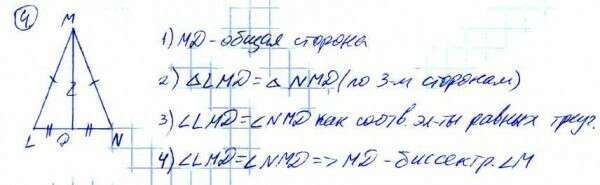 4
M
1) MD - общая сторона
2) △LMD = △NMD (по 3-м сторонам)
3) ∠LMD = ∠NMD как соотв. эл-ты равных треуг.
4) ∠LMD = ∠NMD => MD - биссектр. ∠M
L D N